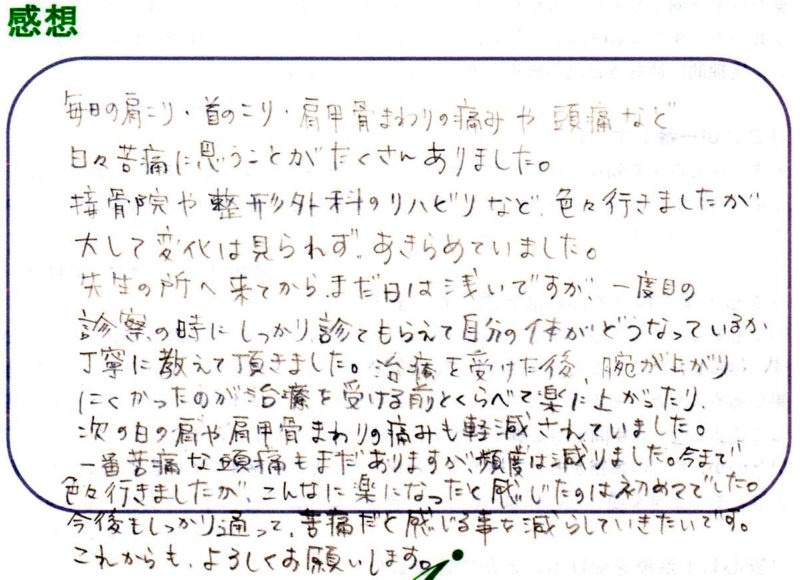 感想
毎日の肩こり・首のこり・肩甲骨まわりの痛みや頭痛など
日々苦痛に思うことがたくさんありました。
接骨院や整形外科のリハビリなど、色々行きましたが
大して変化は見られず、あきらめていました。
先生の所へ来てから、まだ日は浅いですが、一度目の
診察の時にしっかり診てもらえて自分の体がどうなっているか
丁寧に教えて頂きました。治療を受けた後、腕が上がり
にくかったのが治療を受ける前とくらべて楽に上がったり、
次の日の肩や肩甲骨まわりの痛みも軽減されていました。
一番苦痛な頭痛もまだありますが、頻度は減りました。今まで
色々行きましたが、こんなに楽になったと感じたのは初めてでした。
今後もしっかり通って、苦痛だと感じる事を減らしていきたいです。
これからも、よろしくお願いします。